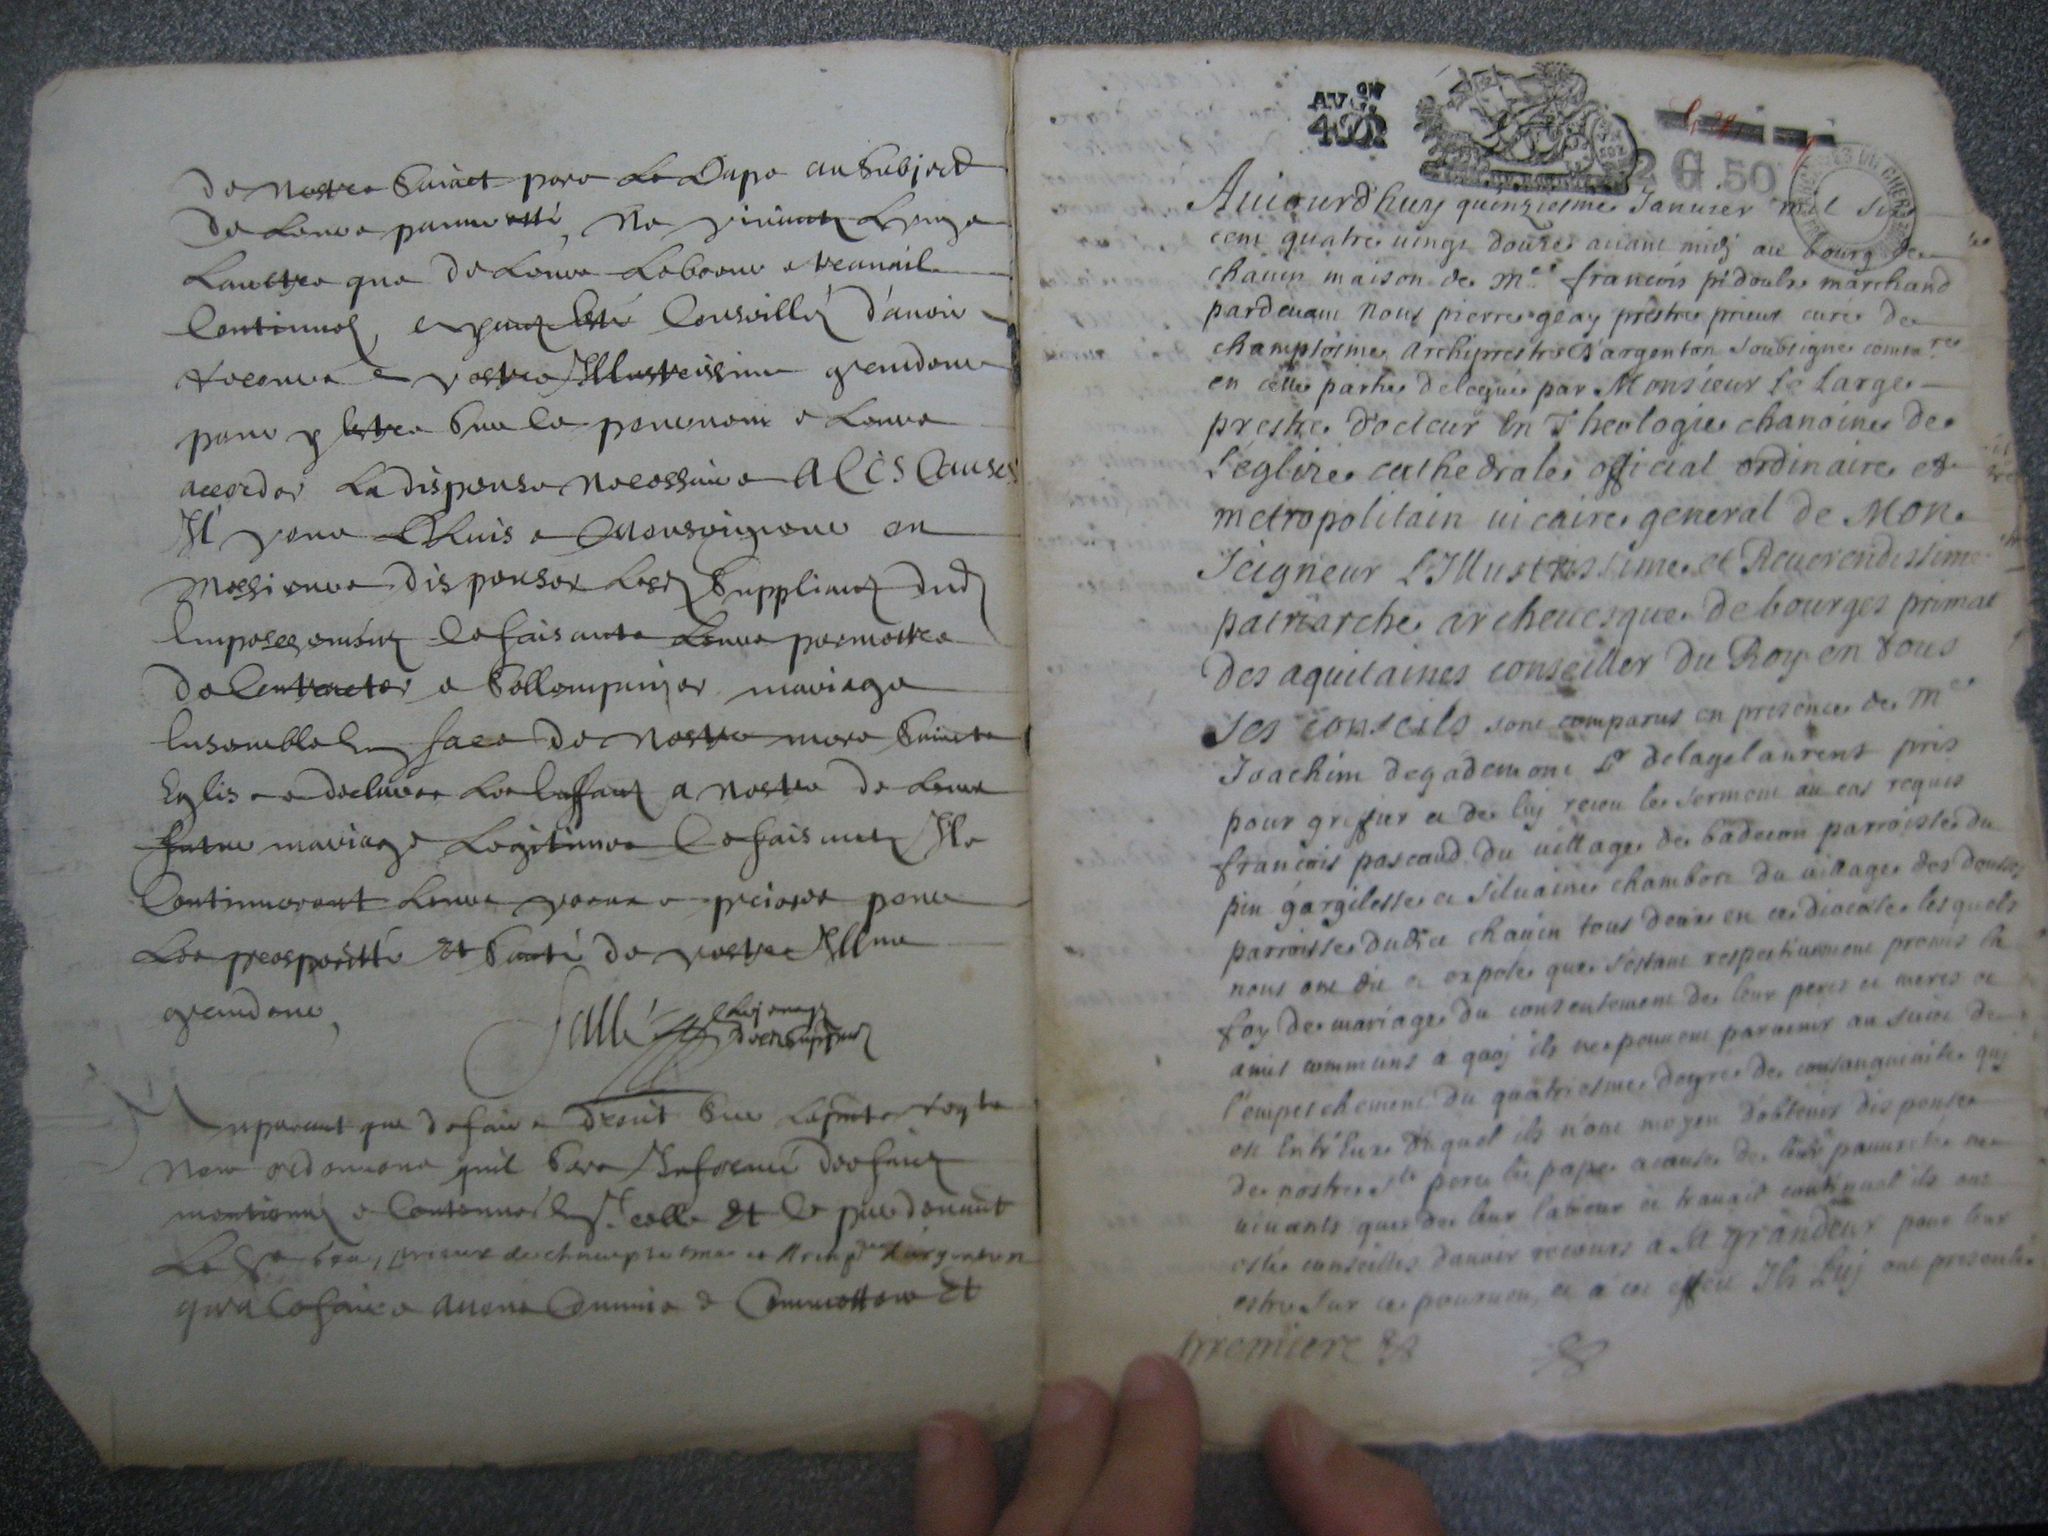 de nostre Sainct pere Le Pape au Subject
de Leurs pauvretté, Ne vivants L'un ne
Lauttre que de Leurs Labeurs et travail
Continuel, Conseillé d'avoir
recours a vostre Illustrissime grandeur
pour y estre Sur ce pourveu et Leurs
accorder La dispense necessaire A CES Causes
Il vous Plaise Monseigneur ou
Messieurs dispenser Lesd Suppliants dud
Empeschement Ce faisant Leurs permettre
de Contracter et Sollempnizer mariage
Ensemble En face de nostre mere Saincte
Eglise et declarer Les Enffants a naistre de Leur
futur mariage Legitimes Ce faisant Ils
Continueront Leurs voeux et prieres pour
Les prosperitté Et Santé de vostre Illme
grandeur,
Sallé
desd Suppts
Auparavant que de faire droit Sur Lad Reqte
Nous ordonnons quil Sera Informé des faits
mentionnés et Contenus En Jcelle Et Ce pardevant
Le Sr prieur de champtosme et Archiptre d'argenton
qu'a Ce faire avons Commis et Commettons Et
AUG.ON
2 G .50
Auiourd'huy quinziesme Januier mil six
cent quatre uingt douze auant midj au bourg de
chauin maison de Me francois pidoulx marchand
pardeuant Nous pierre geay prestre prieur curé de
champtosme, Archiprestre d'argenton soubsigné comre
en cette partie delegué par Monsieur Le Large
prestre Docteur En Theologie chanoine de
L'eglise cathedrale official ordinaire et
metropolitain uicaire general de Mon
Seigneur L'Illustrissime et Reuerendissime
patriarche archeuesque de bourges primat
des aquitaines conseiller du Roy en tous
Ses conseils sont comparus en presence de Me
Joachim degademont Sr delagelaurent pris
pour griffier et de luy receu le serment au cas requis
francois pascaud du uillage de badecon parroisse du
pin gargilesse et siluaine chambon du uillage des
parroisse dudict chauin tous deux en ce diocese lesquels
nous ont dit et exposé que s'estant respectiuement promis la
foy de mariage du consentement de leur peres et meres et
amis communs a quoy ils ne peuuent paruenir au suiet de
l'empeschement du quatriesme degré de consanguinité quj
est Entr'Eux duquel ils n'ont moyen d'obtenir dispense
de nostre St pere le pape a cause de leur pauureté ne
uiuants que de leur labeur et trauail continuel ils ont
estés conseillés d'auoir recours a Sa grandeur pour leur
estre sur ce pourueu, et a cet effect Ils Luy ont presenté
premiere